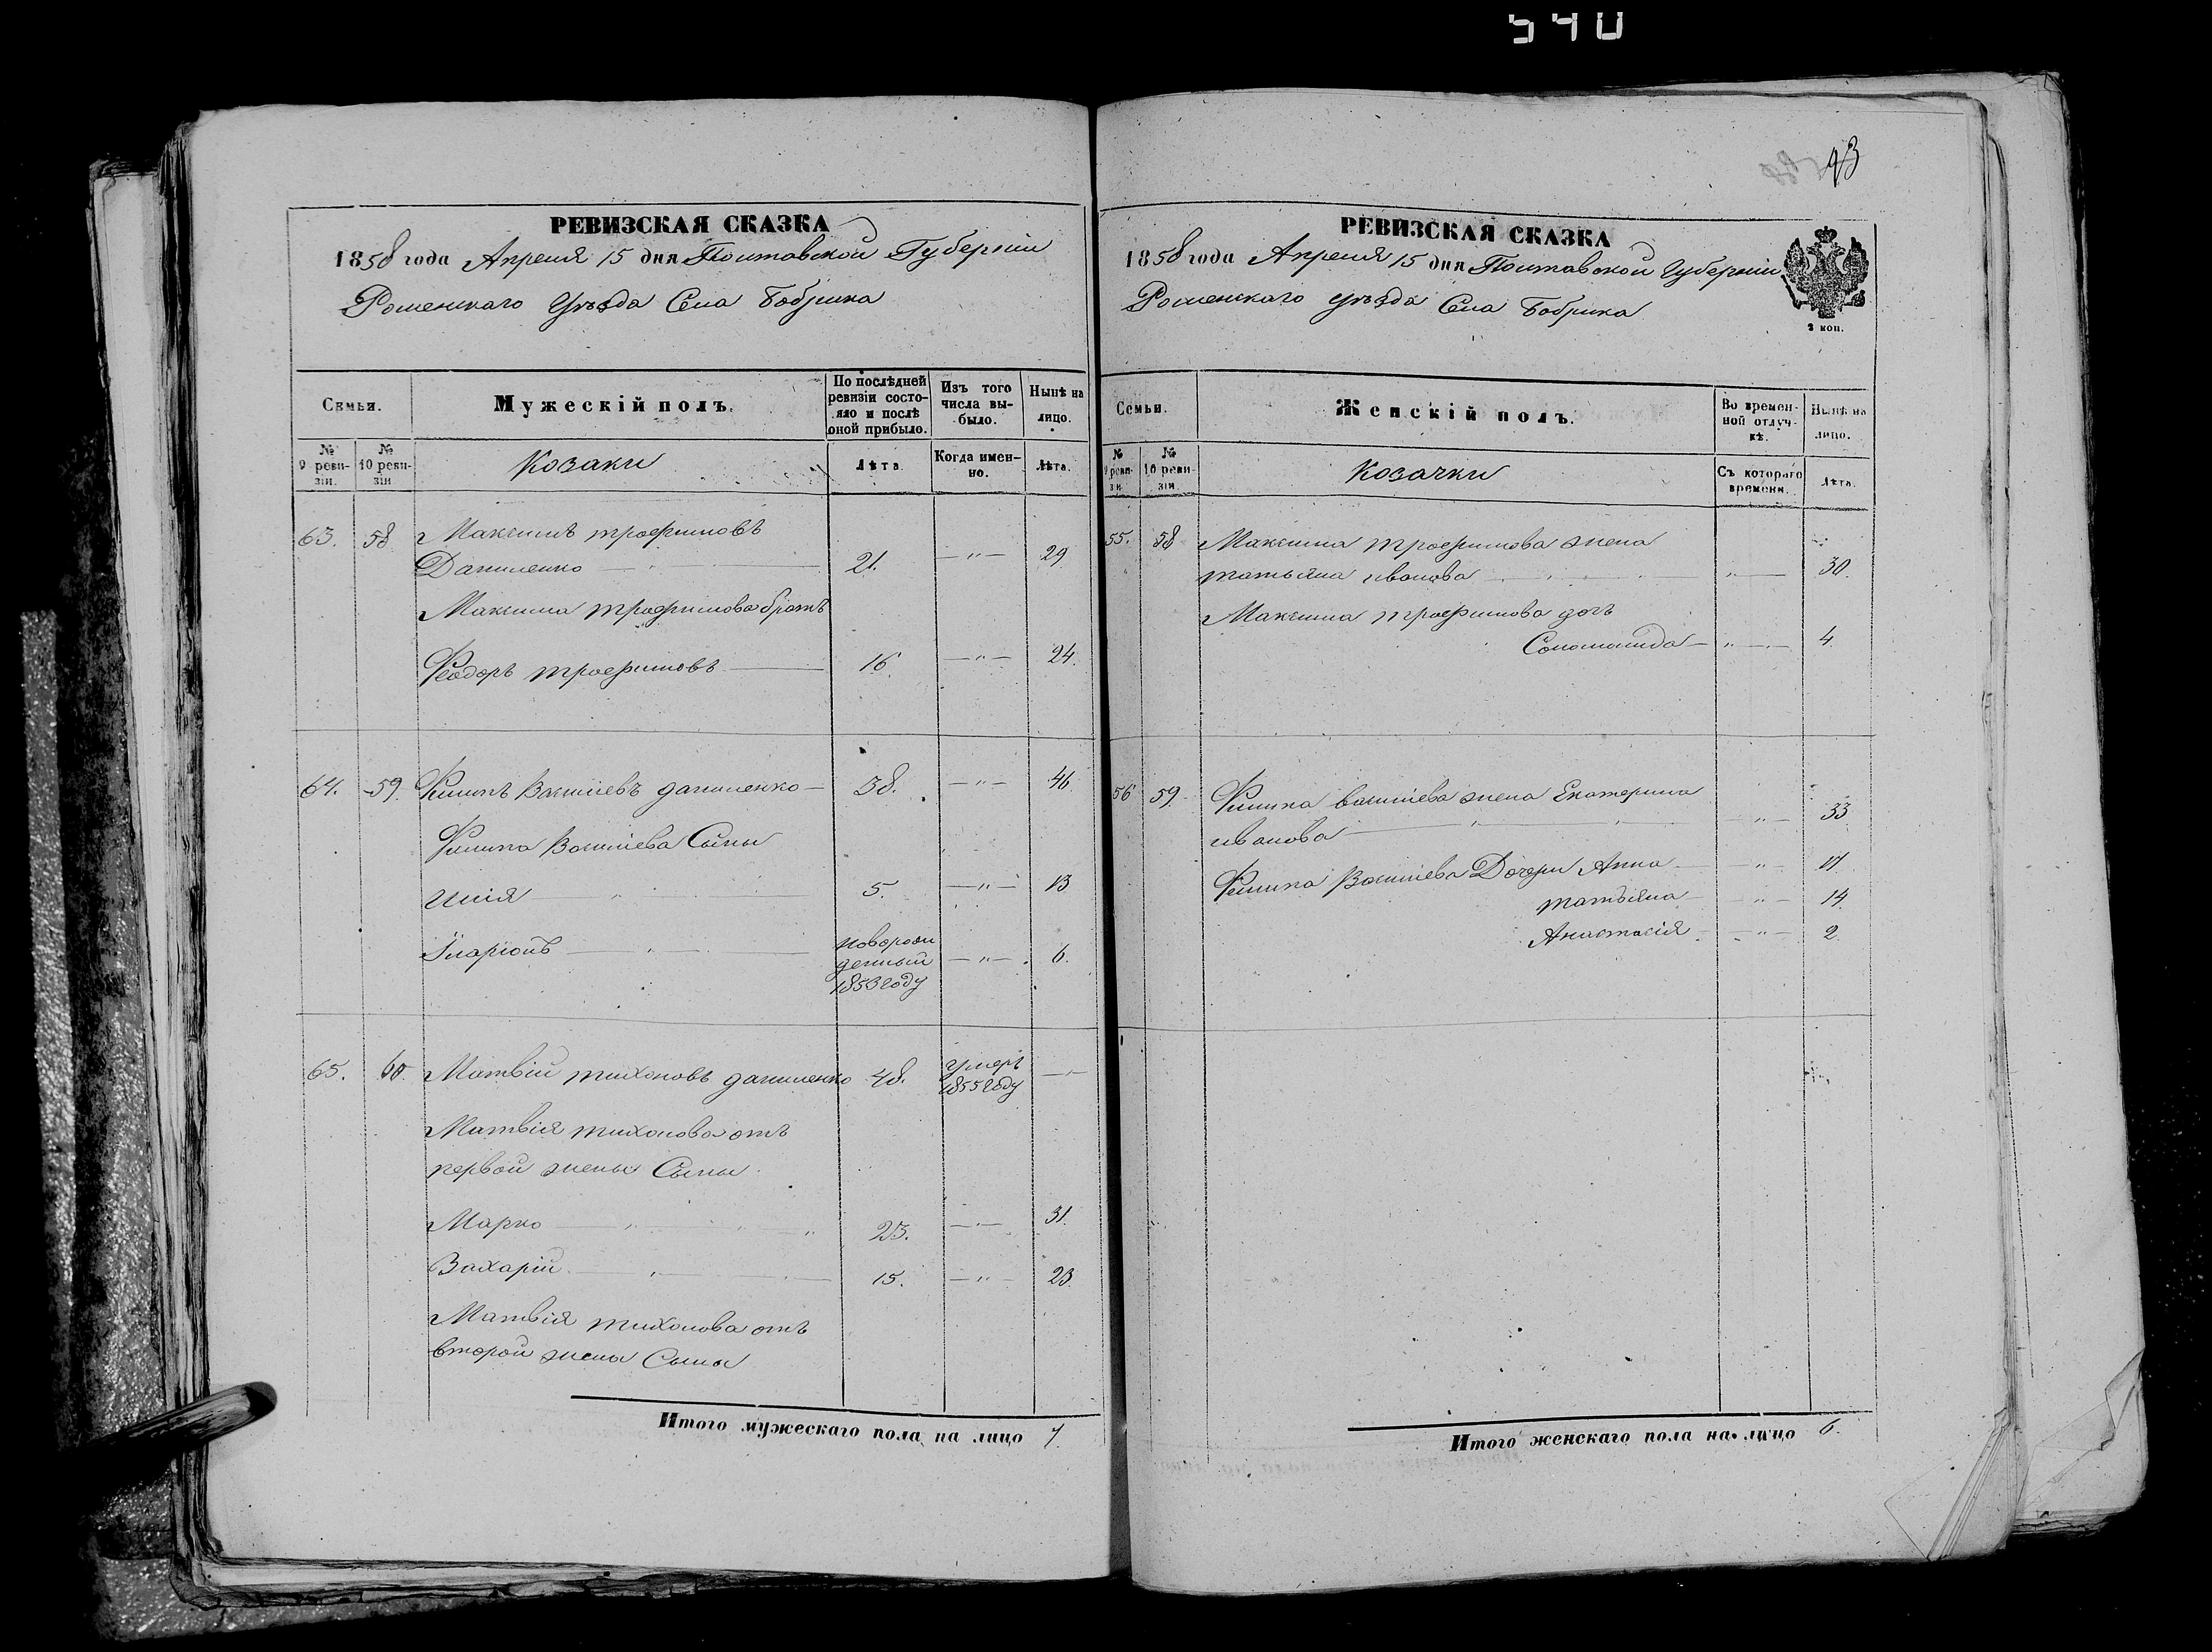 540
93
РЕВИЗСКАЯ СКАЗКА
1858 года Апреля 15 дня Полтавской Губерніи
Роменскаго Уѣзда Села Бобрика
Семьи.
Мужескій полъ.
По послѣдней ревизіи состояло и послѣ оной прибыло.
Изъ того числа выбыло.
Нынѣ на лицо.
№ 9 ревизіи.
№ 10 ревизіи
Козаки
Лѣта
Когда именно.
Лѣта.
63. 58 Максимъ трофимовъ
Даниленко 21. 29
Максима трофимова братъ
Феодоръ трофимовъ 16 24.
64. 59. Филипъ Васильевъ даниленко 38. 46
Филипа Васильева Сыны
Илія 5. 13
Іларіонъ новорожденный 1853 году 6.
65. 60. Матвій тихоновъ даниленко 48. умеръ 1855 году
Матвія тихонова отъ
первой жены Сыны
Марко 23. 31.
Захарій 15. 23.
Матвія тихонова отъ
второй жены Сыны
Итого мужескаго пола на лицо 7.
РЕВИЗСКАЯ СКАЗКА
1858 года Апреля 15 дня Полтавской Губерніи
Роменскаго уѣзда Села Бобрика
2 коп.
Семьи.
Женскій полъ.
Во временной отлучкѣ.
Нынѣ на лицо.
№ 9 ревизіи
№ 10 ревизіи.
Козачки
Съ котораго времени.
Лѣта.
55. 58 Максима трофимова жена
татьяна иванова 30.
Максима трофимова дочь
Соломанида 4.
56 59. Филипа васильева жена Екатерина
иванова 33
Филипа Васильева Дочери Анна 17
татьяна 14.
Анастасія 2
Итого женскаго пола на лицо 6.